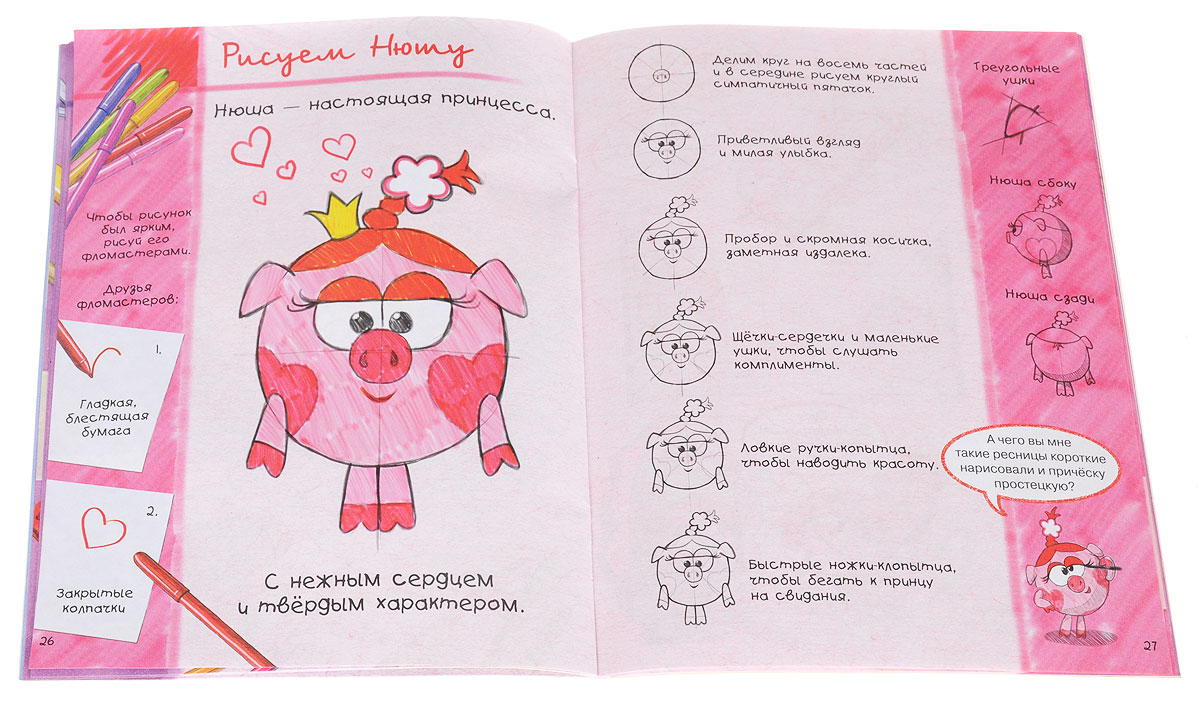 Рисуем Нюшу
Нюша — настоящая принцесса.
Чтобы рисунок
был ярким,
рисуй его
фломастерами.
Друзья
фломастеров:
1.
Гладкая,
блестящая
бумага
2.
Закрытые
колпачки
С нежным сердцем
и твёрдым характером.
26
Делим круг на восемь частей
и в середине рисуем круглый
симпатичный пятачок.
Приветливый взгляд
и милая улыбка.
Пробор и скромная косичка,
заметная издалека.
Щёчки-сердечки и маленькие
ушки, чтобы слушать
комплименты.
Ловкие ручки-копытца,
чтобы наводить красоту.
Быстрые ножки-клопытца,
чтобы бегать к принцу
на свидания.
Треугольные
ушки
Нюша сбоку
Нюша сзади
А чего вы мне
такие ресницы короткие
нарисовали и причёску
простецкую?
27